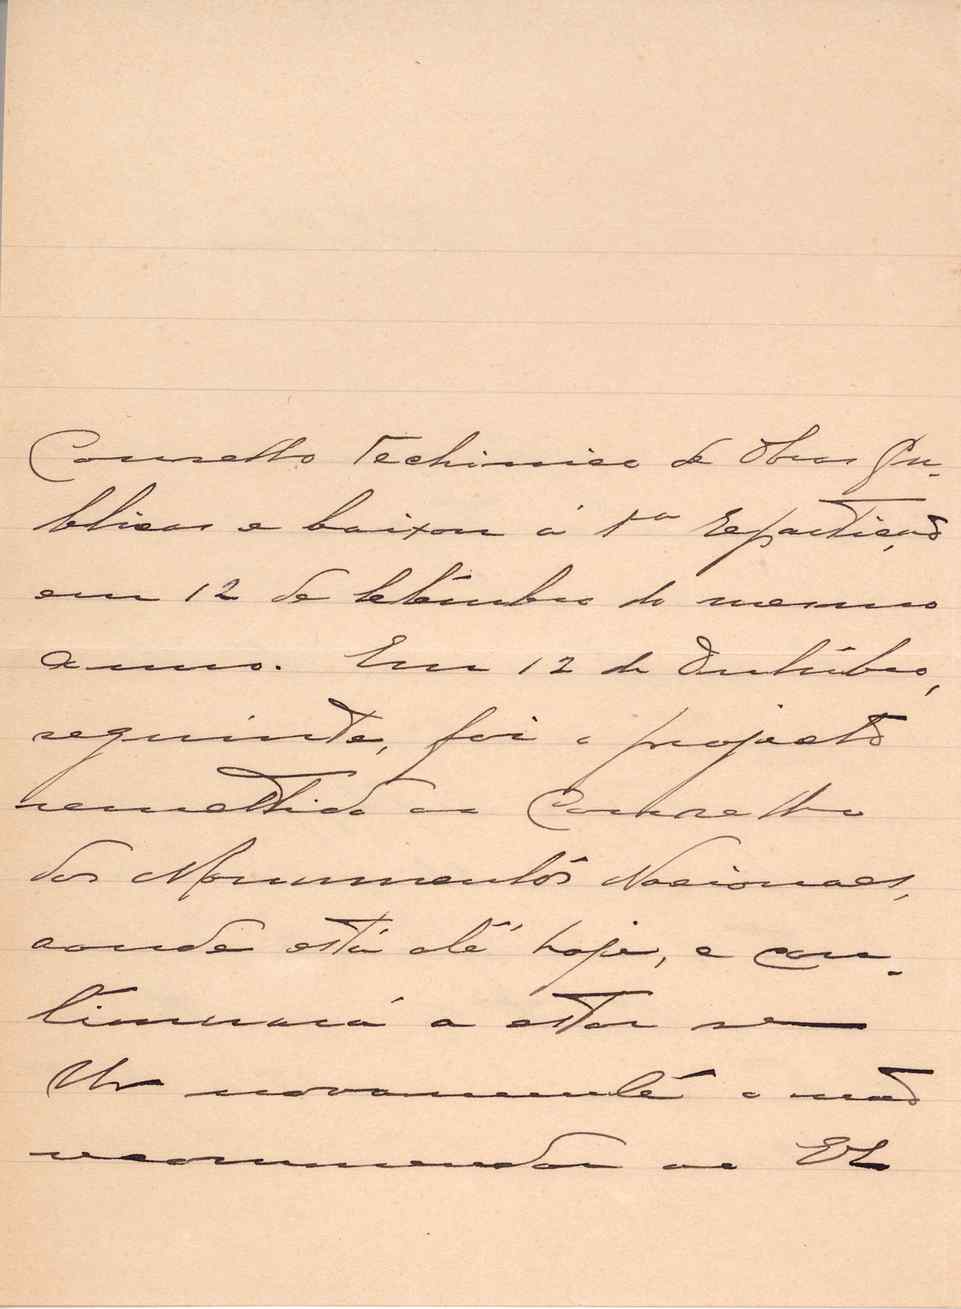 Conselho Techinico de Obras Pu-
blicas e baixou á 1ª Repartição
em 12 de Setêmbro do mesmo
anno. Em 12 de Outúbro,
seguinte, foi o projecto
remetthido ao Conselho
dos Monumentos Nacionaes,
aonde está até hoje, e con-
tinuará a estar se
V. Ex novamente o não
recommendar ao